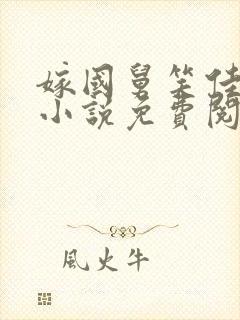 嫁國舅笑佳
小說免費閱
風火牛